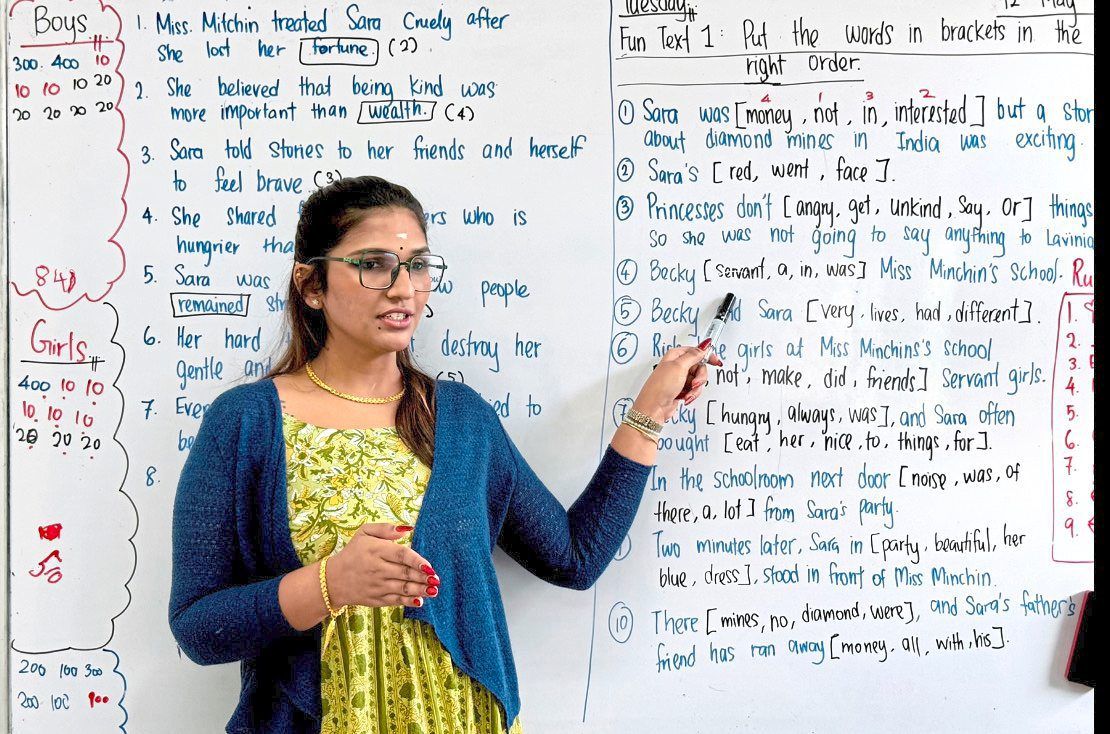 Boys
300 400 10
10 10 10 20
20 20 20 20
840
Girls
400 10 10
10 10 10
20 20 20
50
200 100 300
200 100 900
1. Miss. Mitchin treated Sara Cruely after
She lost her fortune. (2)
2. She believed that being kind was
more important than wealth. (4)
3. Sara told stories to her friends and herself
to feel brave. (3)
4. She shared who is
hungrier
5. Sara was people
remained
6. Her hard destroy her
gentle (5)
7. to
8.
Tuesday 12 May
Fun Text 1: Put the words in brackets in the
right order.
4 1 3 2
① Sara was [money, not, in, interested] but a
about diamond mines in India was exciting.
② Sara's [red, went, face].
③ Princesses don't [angry, get, unkind, Say, Or] things
So she was not going to say anything to Lavinia
④ Becky [servant, a, in, was] Miss Minchin's School.
⑤ Becky Sara [very, lives, had, different].
⑥ girls at Miss Minchins's school
not, make, did, friends] Servant girls.
[hungry, always, was], and Sara often
bought [eat, her, nice, to, things, for].
In the schoolroom next door [noise, was, of
there, a, lot] from Sara's party.
Two minutes later, Sara in [party, beautiful, her
blue, dress], stood in front of Miss Minchin.
⑩ There [mines, no, diamond, were], and Sara's father's
friend has ran away [money, all, with, his].
Ru
1.
2.
3.
4.
5.
6.
7.
8.
9.